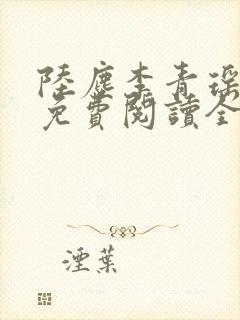 陸塵李青瑤
免費閱讀全
湮葉